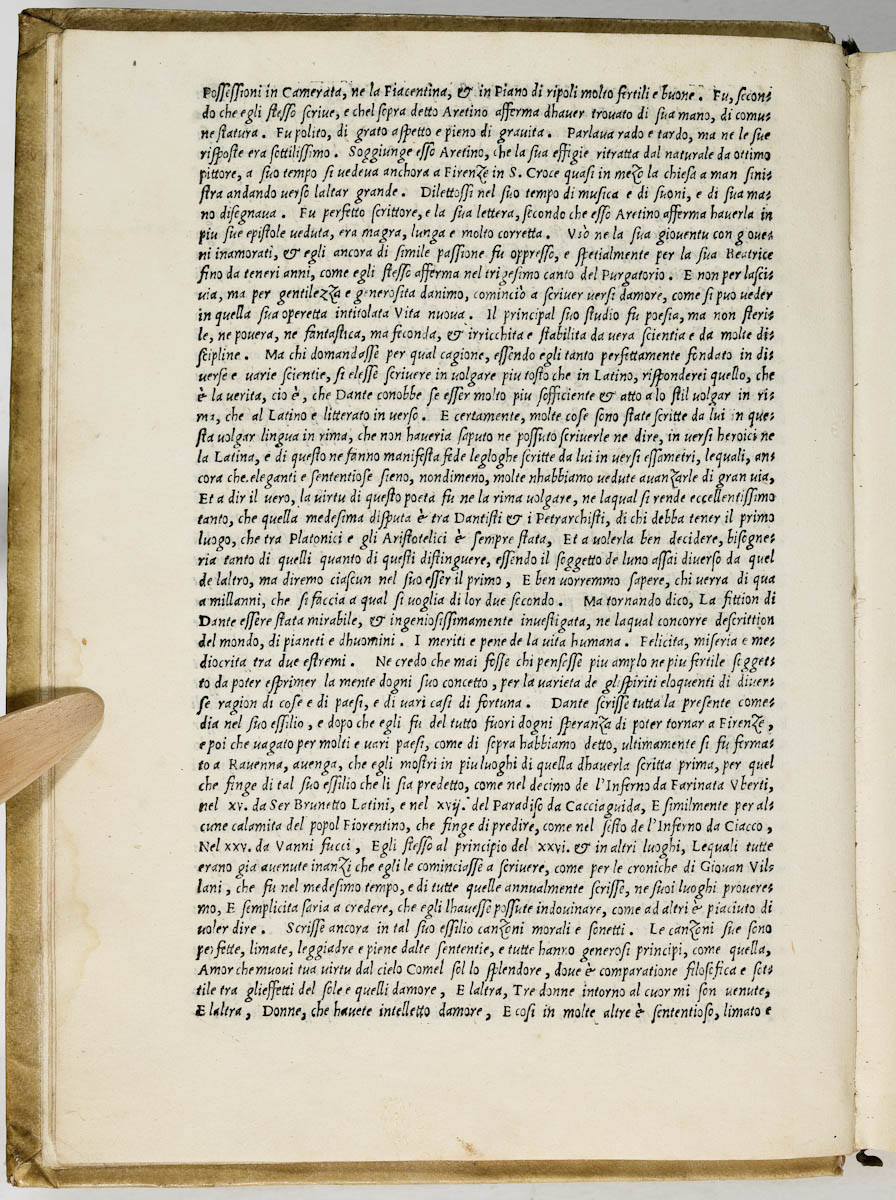 Possessioni in Camerata, ne la Piacentina, & in Piano di ripoli molto fertili e buone. Fu, secon-
do che egli stesso scrive, e chel sopra detto Aretino afferma dhaver trovato di sua mano, di comu-
ne statura. Fu polito, di grato aspetto e pieno di gravita. Parlava rado e tardo, ma ne le sue
risposte era sottilissimo. Soggiunge esso Aretino, che la sua effigie ritratta dal naturale da ottimo
pittore, a suo tempo si vedeva anchora a Firenze in S. Croce quasi in mezo la chiesa a man sini-
stra andando verso laltar grande. Dilettossi nel suo tempo di musica e di suoni, e di sua ma-
no disegnava. Fu perfetto scrittore, e la sua lettera, secondo che esso Aretino afferma haverla in
piu sue epistole veduta, era magra, lunga e molto corretta. Usò ne la sua gioventu con giove-
ni inamorati, & egli ancora di simile passione fu oppresso, e spetialmente per la sua Beatrice
fino da teneri anni, come egli stesso afferma nel trigesimo canto del Purgatorio. E non per lasci-
via, ma per gentilezza e generosita danimo, cominciò a scriver versi damore, come si puo veder
in quella sua operetta intitolata Vita nuova. Il principal suo studio fu poesia, ma non steri-
le, ne povera, ne fantastica, ma feconda, & irricchita e stabilita da vera scientia e da molte di-
scipline. Ma chi domandasse per qual cagione, essendo egli tanto perfettamente fondato in di-
verse e varie scientie, si elesse scrivere in volgare piu tosto che in Latino, risponderei quello, che
è la verita, cio è, che Dante conobbe se esser molto piu sofficiente & atto a lo stil volgar in ri-
ma, che al Latino e litterato in verso. E certamente, molte cose sono state scritte da lui in que-
sta volgar lingua in rima, che non haveria saputo ne possuto scriverle ne dire, in versi heroici ne
la Latina, e di questo ne fanno manifesta fede legloghe scritte da lui in versi essametri, lequali, an-
cora che eleganti e sententiose sieno, nondimeno, molte nhabbiamo vedute avanzarle di gran via,
Et a dir il vero, la virtu di questo poeta fu ne la rima volgare, ne laqual si rende eccellentissimo
tanto, che quella medesima disputa è tra Dantisti & i Petrarchisti, di chi debba tener il primo
luogo, che tra Platonici e gli Aristotelici è sempre stata, Et a volerla ben decidere, bisogne-
ria tanto di quelli quanto di questi distinguere, essendo il soggetto de luno assai diverso da quel
de laltro, ma diremo ciascun nel suo esser il primo, E ben vorremmo sapere, chi verra di qua
a millanni, che si faccia a qual si voglia di lor due secondo. Ma tornando dico, La fittion di
Dante essere stata mirabile, & ingeniosissimamente investigata, ne laqual concorre descrittion
del mondo, di pianeti e dhuomini. I meriti e pene de la vita humana. Felicita, miseria e me-
diocrita tra due estremi. Ne credo che mai fosse chi pensesse piu amplo ne piu fertile sogget-
to da poter esprimer la mente dogni suo concetto, per la varieta de gli spiriti eloquenti di diver-
se ragion di cose e di paesi, e di vari casi di fortuna. Dante scrisse tutta la presente come-
dia nel suo essilio, e dopo che egli fu del tutto fuori dogni speranza di poter tornar a Firenze,
e poi che vagato per molti e vari paesi, come di sopra habbiamo detto, ultimamente si fu ferma-
to a Ravenna, avenga, che egli mostri in piu luoghi di quella dhaverla scritta prima, per quel
che finge di tal suo essilio che li sia predetto, come nel decimo de l'Inferno da Farinata Uberti,
nel xv. da Ser Brunetto Latini, e nel xvij. del Paradiso da Cacciaguida, E similmente per al-
cune calamita del popol Fiorentino, che finge di predire, come nel sesto de l'Inferno da Ciacco,
Nel xxv. da Vanni fucci, Egli stesso al principio del xxvi. & in altri luoghi, Lequali tutte
erano gia avenute inanzi che egli le cominciasse a scrivere, come per le croniche di Giovan Vil-
lani, che fu nel medesimo tempo, e di tutte quelle annualmente scrisse, ne suoi luoghi provere-
mo, E semplicita saria a credere, che egli lhavesse possute indovinare, come ad altri è piaciuto di
voler dire. Scrisse ancora in tal suo essilio canzoni morali e sonetti. Le canzoni sue sono
perfette, limate, leggiadre e piene dalte sententie, e tutte hanno generosi principi, come quella,
Amor che muovi tua virtu dal cielo Comel sol lo splendore, dove è comparatione filosofica e sot-
tile tra glieffetti del sole e quelli damore, E laltra, Tre donne intorno al cuor mi son venute,
E laltra, Donne, che havete intelletto damore, E cosi in molte altre è sententioso, limato e